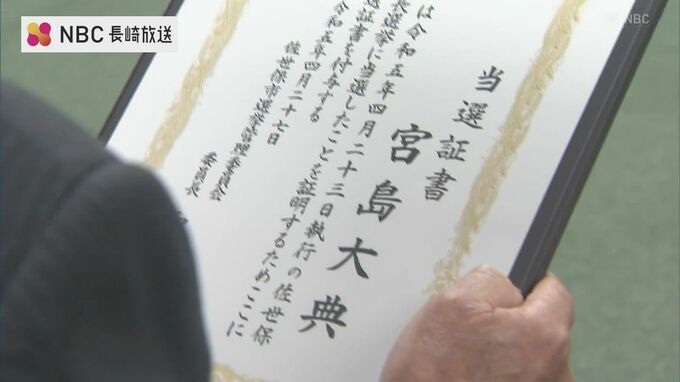 NBC 長崎放送
©NBC
当選証書
宮島大典
は令和五年四月二十三日執行の佐世保
長選挙に当選したことを証明するためここに
選証書を付与する
令和五年四月二十七日
佐世保市選挙管理委員会
委員長